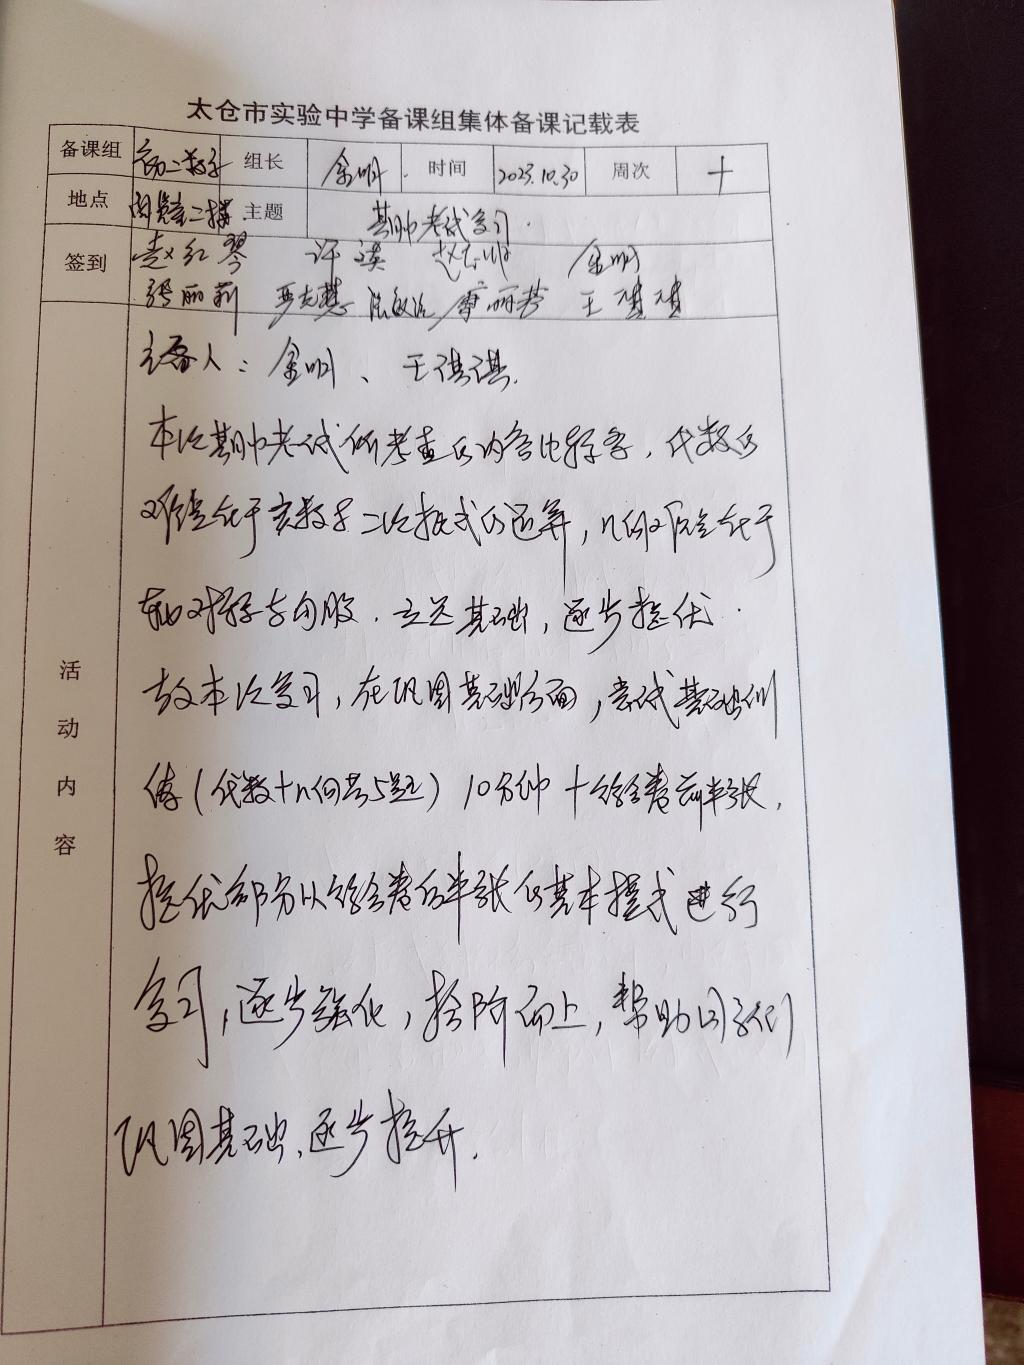 太仓市实验中学备课组集体备课记载表
备课组 初二数学 组长 金明 时间 2023.10.30 周次 十
地点 阅览室二楼 主题 期中考试复习.
签到 赵红琴 许瑛 金明
张丽莉 王琪琪
主备人：金明、王琪琪.
活动内容
本次期中考试所考查的内容比较多，代数的
难点在于实数与二次根式的运算，几何难点在于
轴对称与勾股.立足基础，逐步提优.
故本次复习，在巩固基础方面，尝试基础训
练（代数+几何共5题）10分钟+综合卷前半张，
提优部分以综合卷后半张的基本模式进行
复习，逐步强化，拾阶而上，帮助同学们
巩固基础、逐步提升.